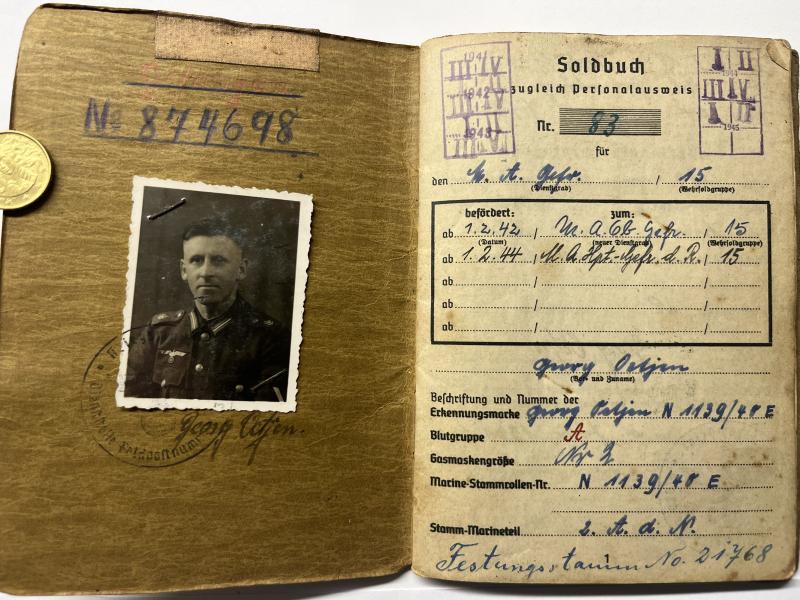 Nº 874698
Georg Oetjen.
Feldpostnum
1941
1942
1943
Soldbuch
zugleich Personalausweis
Nr. 83
für
I II
1944
1945
den M. A. Gefr. / 15
(Dienstgrad) (Wehrsoldgruppe)
befördert: zum:
ab 1.2.42 / M. A. Ob. Gefr. / 15
(Datum) (neuer Dienstgrad) (Wehrsoldgruppe)
ab 1.2.44 / M. A. Hpt.-Gefr. d. R. / 15
ab / /
ab / /
ab / /
Georg Oetjen
(Vor- und Zuname)
Beschriftung und Nummer der
Erkennungsmarke Georg Oetjen N 1139/40 E
Blutgruppe A
Gasmaskengröße Nr 2
Marine-Stammrollen-Nr. N 1139/40 E
Stamm-Marineteil 2. A. d. N.
1
Festungsstamm No. 21768